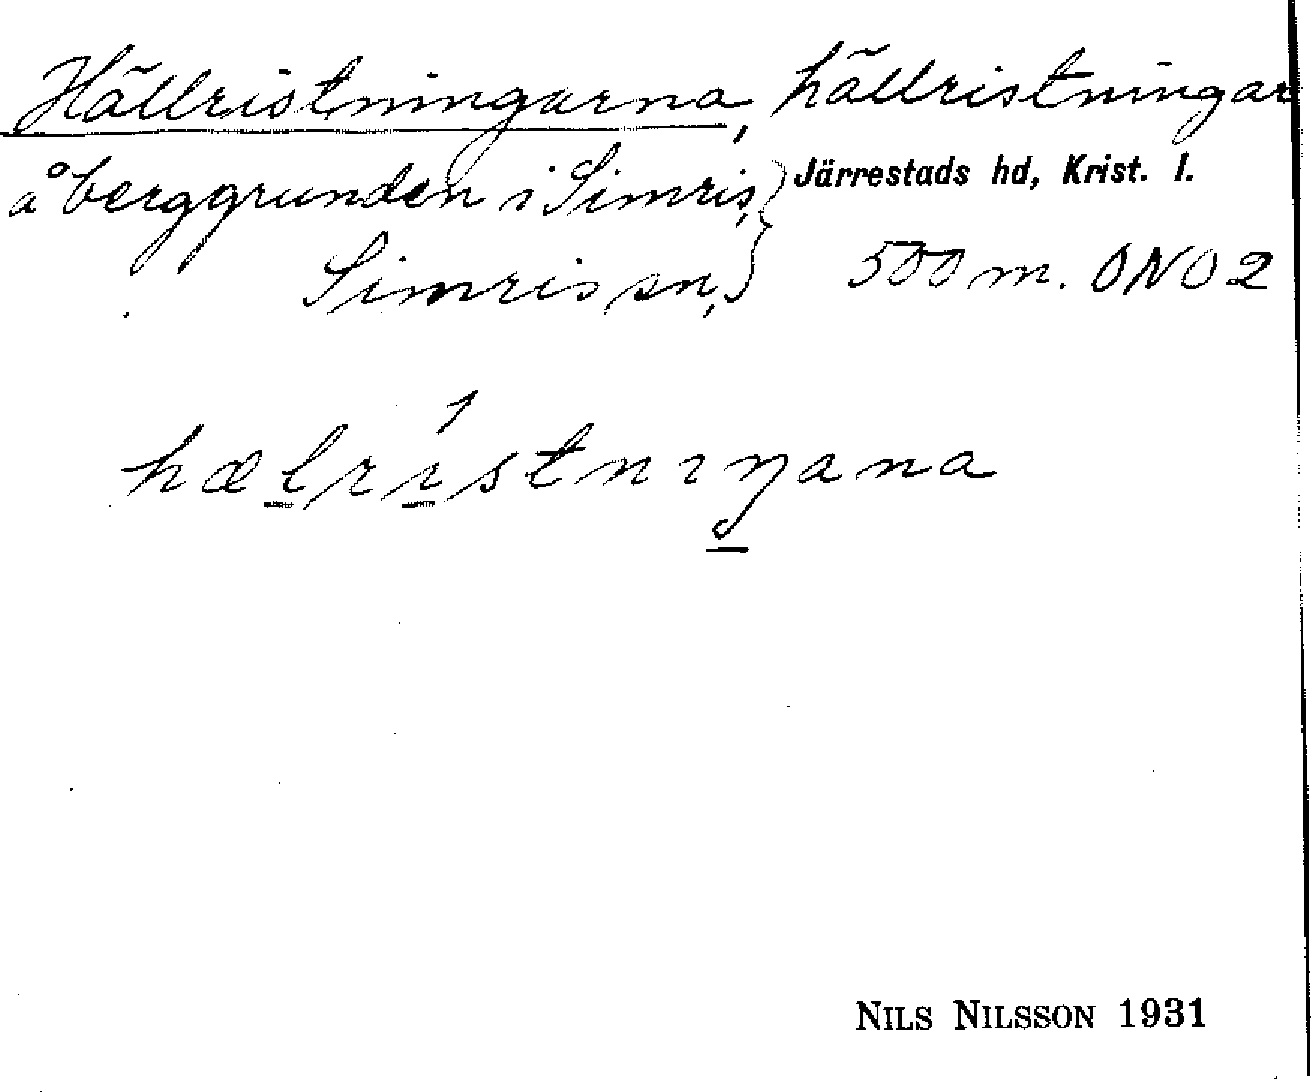 Hällristningarna, hällristningar
å berggrunden i Simris, Järrestads hd, Krist. l.
Simris sn, 500 m. ONO 2
hælrıstnıŋana
NILS NILSSON 1931